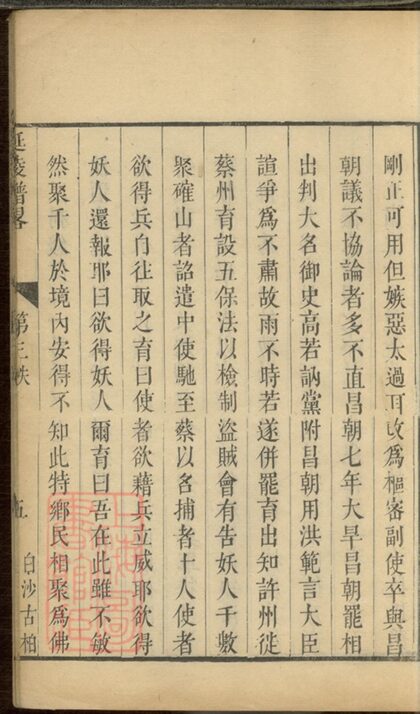 剛正可用但嫉惡太過耳改為樞密副使卒與昌
朝議不協論者多不直昌朝七年大旱昌朝罷相
出判大名御史高若訥黨附昌朝用洪範言大臣
諠爭為不肅故雨不時若遂併罷育出知許州徙
蔡州育設五保法以檢制盜賊會有告妖人千數
聚確山者詔遣中使馳至蔡以名捕者十人使者
欲得兵自往取之育曰使者欲藉兵立威耶欲得
妖人還報耶曰欲得妖人爾育曰吾在此雖不敏
然聚千人於境內安得不知此特鄉民相聚為佛
延陵譜畧 第三帙 九 白沙古柏